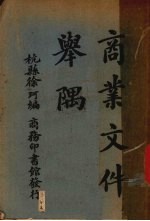 商業文件
舉隅
杭縣徐珂編
商務印書館發行